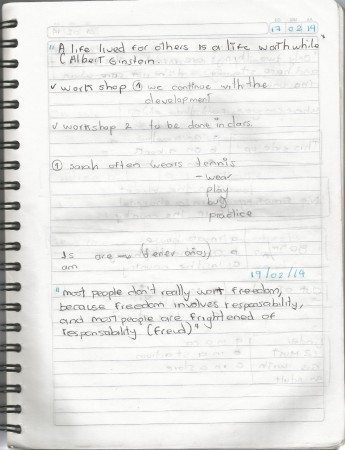 17 02 14
"A life lived for others is a life worthwhile"
(Albert Einstein
✓ workshop ① we continue with the
development
✓ workshop 2 to be done in class
① sarah often wears tennis
- wear
play
buy
practice
Is are → (tener años)
am
19/02/14
"most people don't really want freedom,
because freedom involves responsability,
and most people are frightened of
responsability (Freud)"